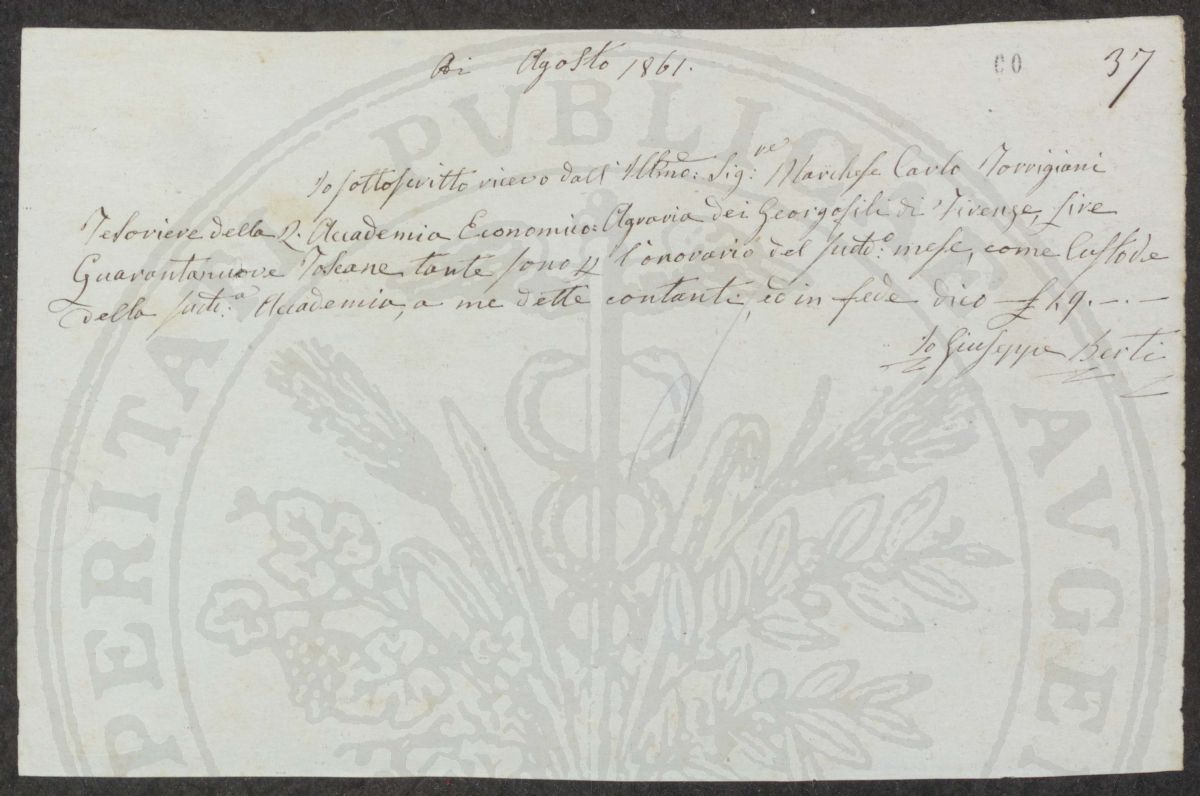 Adi Agosto 1861.
CO 37
Io sottoscritto ricevo dall' Illmo: Sig:re Marchese Carlo Torrigiani
Tesoriere della R. Accademia Economico=Agraria dei Georgofili di Firenze, Lire
Quarantanuove Toscane tante sono p l'onorario del sudd:o mese, come Custode
della sudd:a Accademia, a me dette contanti, ed in fede dico £ 49. —.—
Io Giuseppe Berti
PROSPERITATI PVBLICAE AVGE